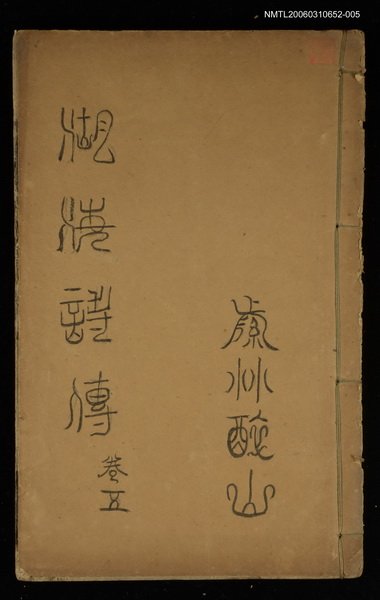 NMTL20060310652-005
州醉山
湖海詩傳
卷五